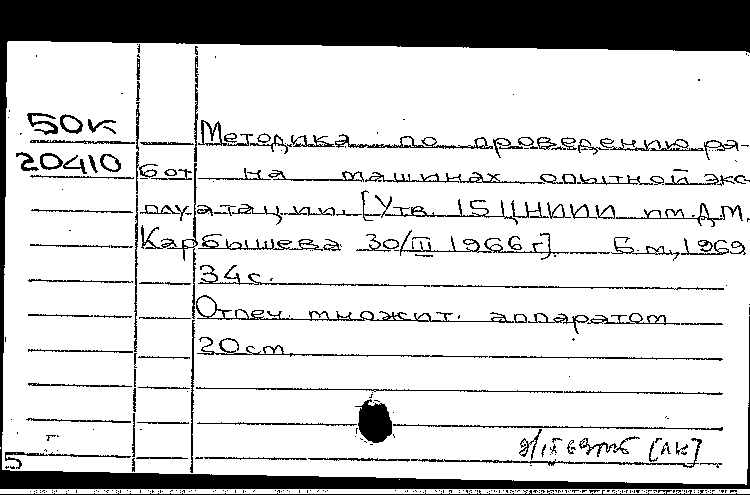 50К
Методика по проведению ра-
20410
бот на машинах опытной экс
плуатации. [Утв. 15 ЦНИИИ им. Д.М.
Карбышева 30/III 1966 г]. Б.м., 1969
34 с.
Отпеч. множит. аппаратом
20 см.
[ЛК]
5